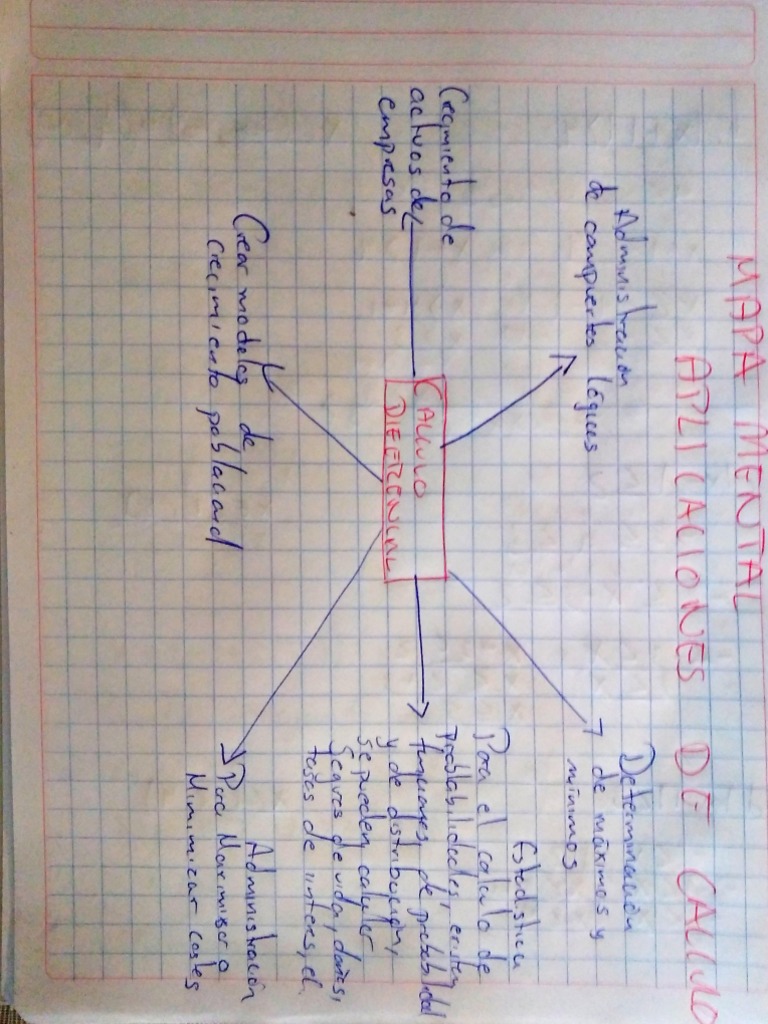 MAPA MENTAL
APLICACIONES DE CALCULO
Administración
de compuertas lógicas
Determinación
de máximos y
mínimos
Crecimiento de
activos de
empresas
CALCULO
DIFERENCIAL
Estadistica
Para el calculo de
probabilidades, existen
funciones de probabilidad
y de distribución,
se pueden calcular
seguros de vida, daños,
tasas de interes, el
Crear modelos de
crecimiento poblacional
Administración
Para Maximizar o
Minimizar costes